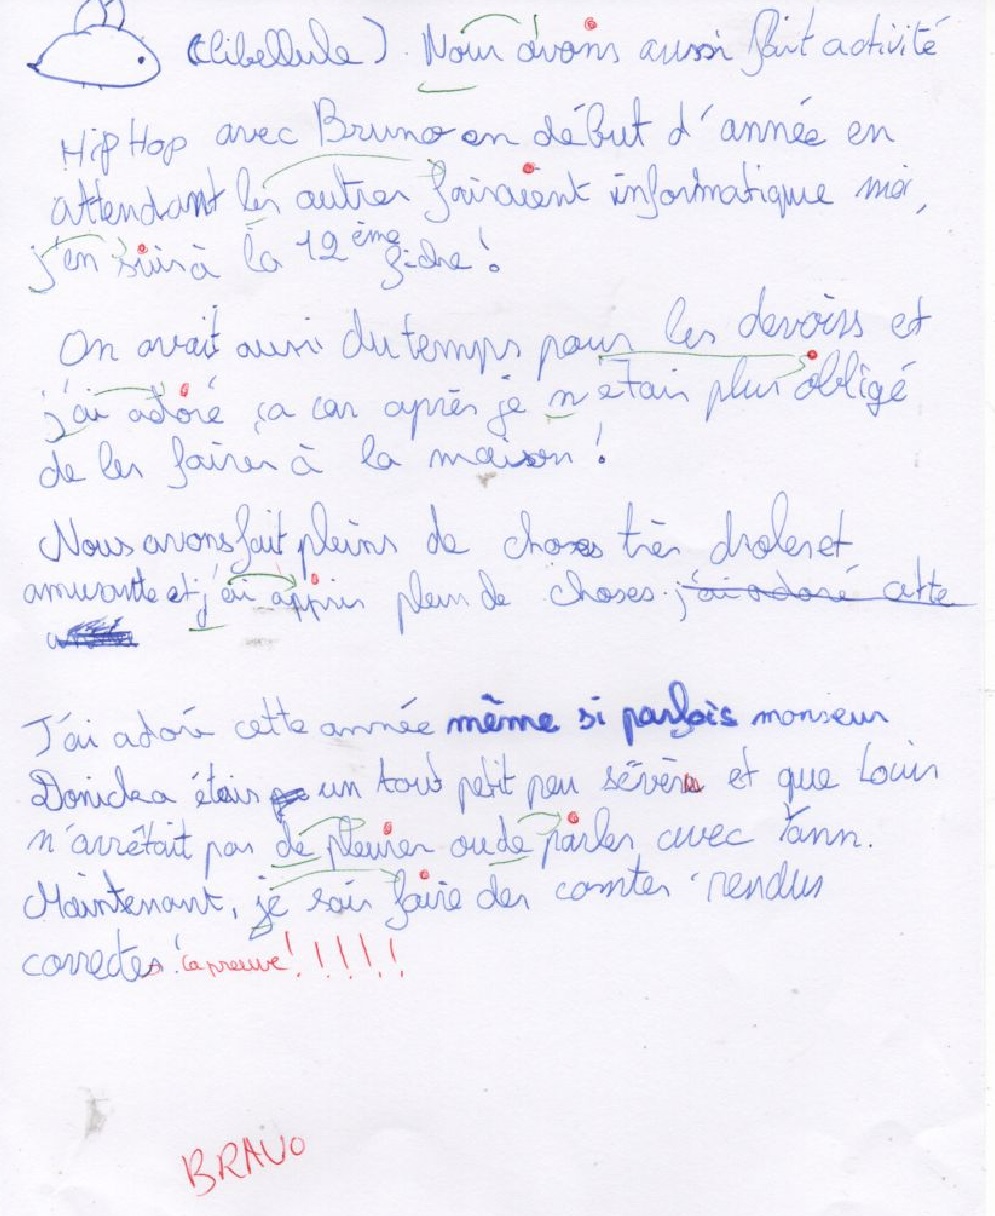 (libellule). Nous avons aussi fait activité
HipHop avec Bruno en début d'année en
attendant les autres faisaient informatique moi,
j'en suis à la 12ème fiche!
On avait aussi du temps pour les devoirs et
j'ai adoré ça car après je n'etais plus obligé
de les faires à la maison!
Nous avons fait pleins de choses très droles et
amusante et j'ai appris plein de choses. j'ai adoré cette
J'ai adoré cette année même si parfois monsieur
Donicka étais un tout petit peu sévère et que Louis
n'arrêtait pas de pleurer ou de parler avec Yann.
Maintenant, je sais faire des comtes rendus
correctes la preuve! !!!!!
BRAVO